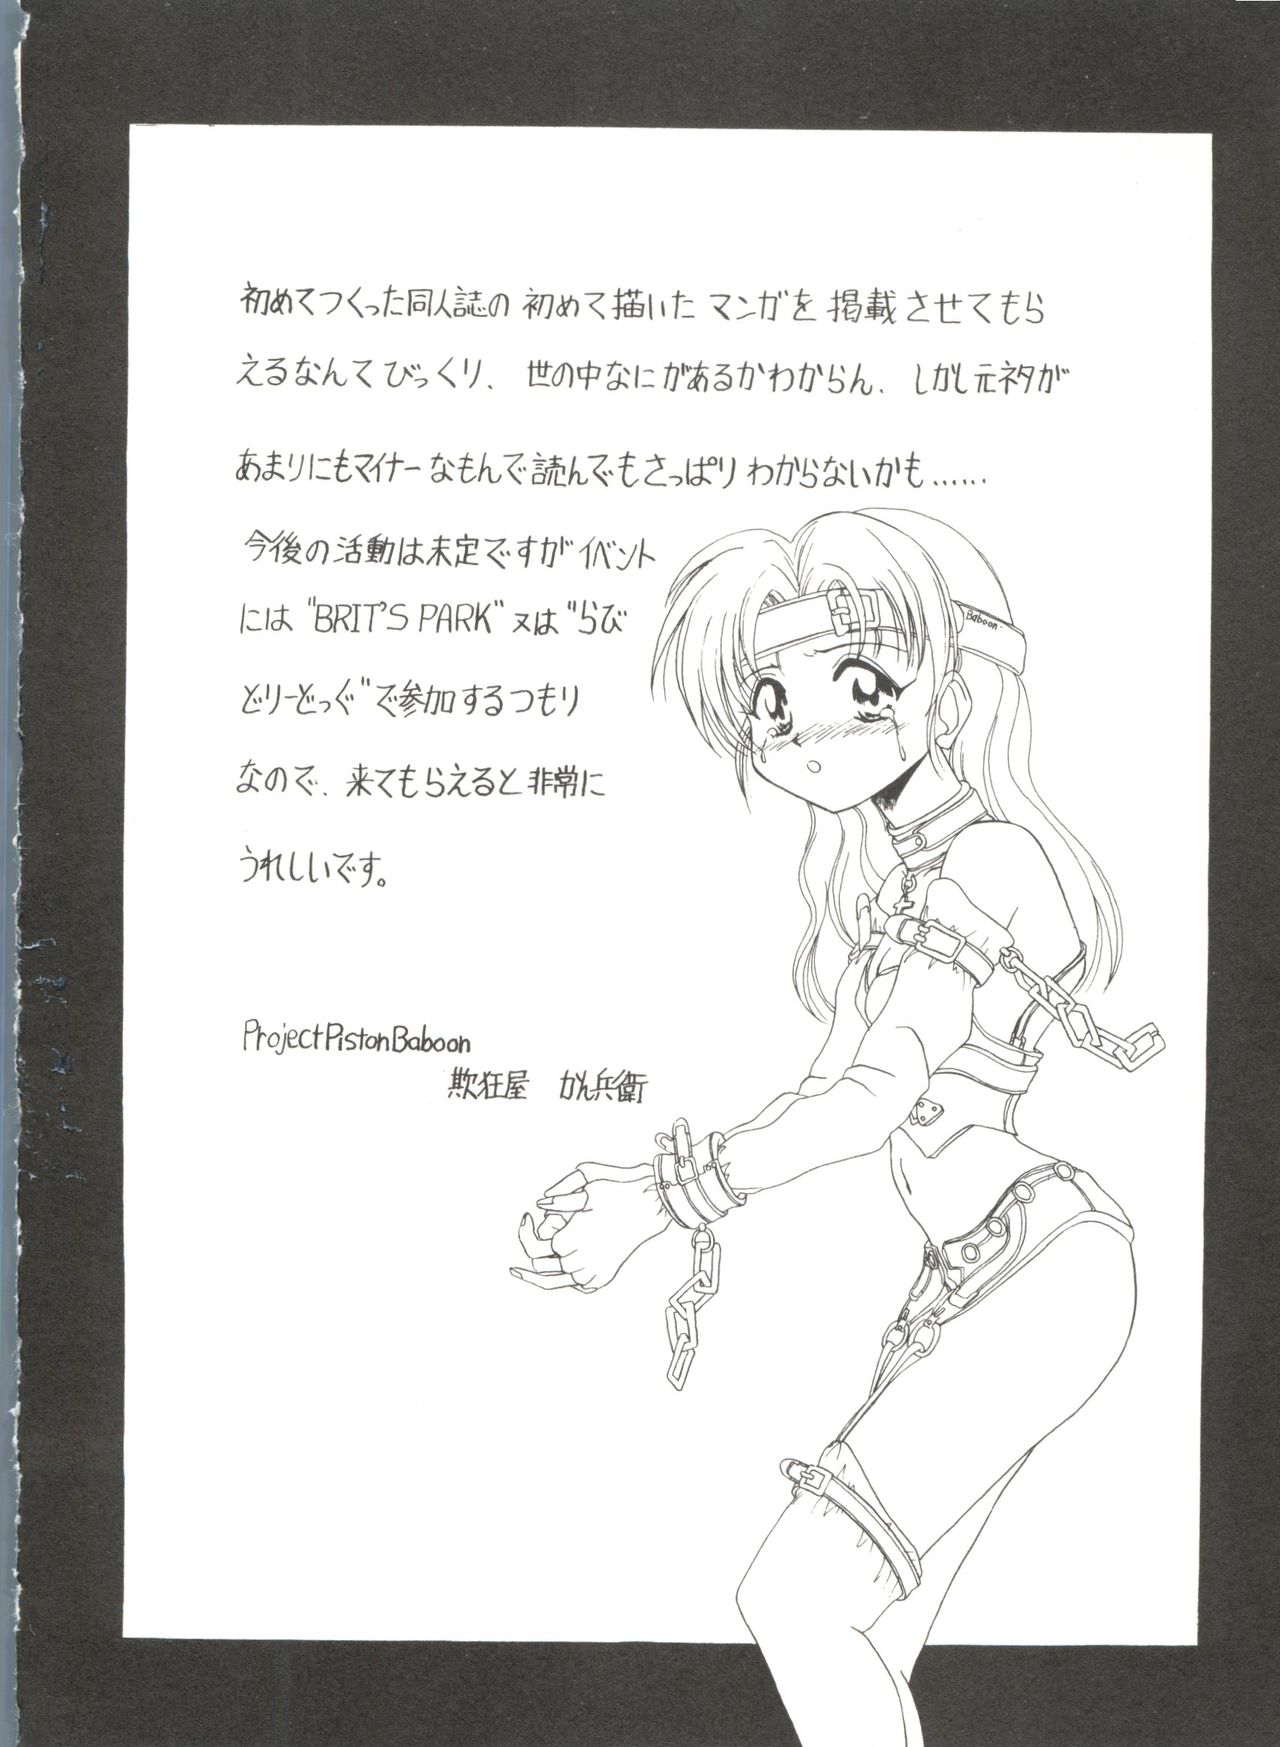 初めてつくった同人誌の初めて描いたマンガを掲載させてもら
えるなんてびっくり、世の中なにがあるかわからん、しかし元ネタが
あまりにもマイナーなもんで読んでもさっぱりわからないかも……
今後の活動は未定ですがイベント
には"BRIT'S PARK"又は"らび
どりーどっぐ"で参加するつもり
なので、来てもらえると非常に
うれしいです。
Baboon
ProjectPistonBaboon
欺狂屋 かん兵衛